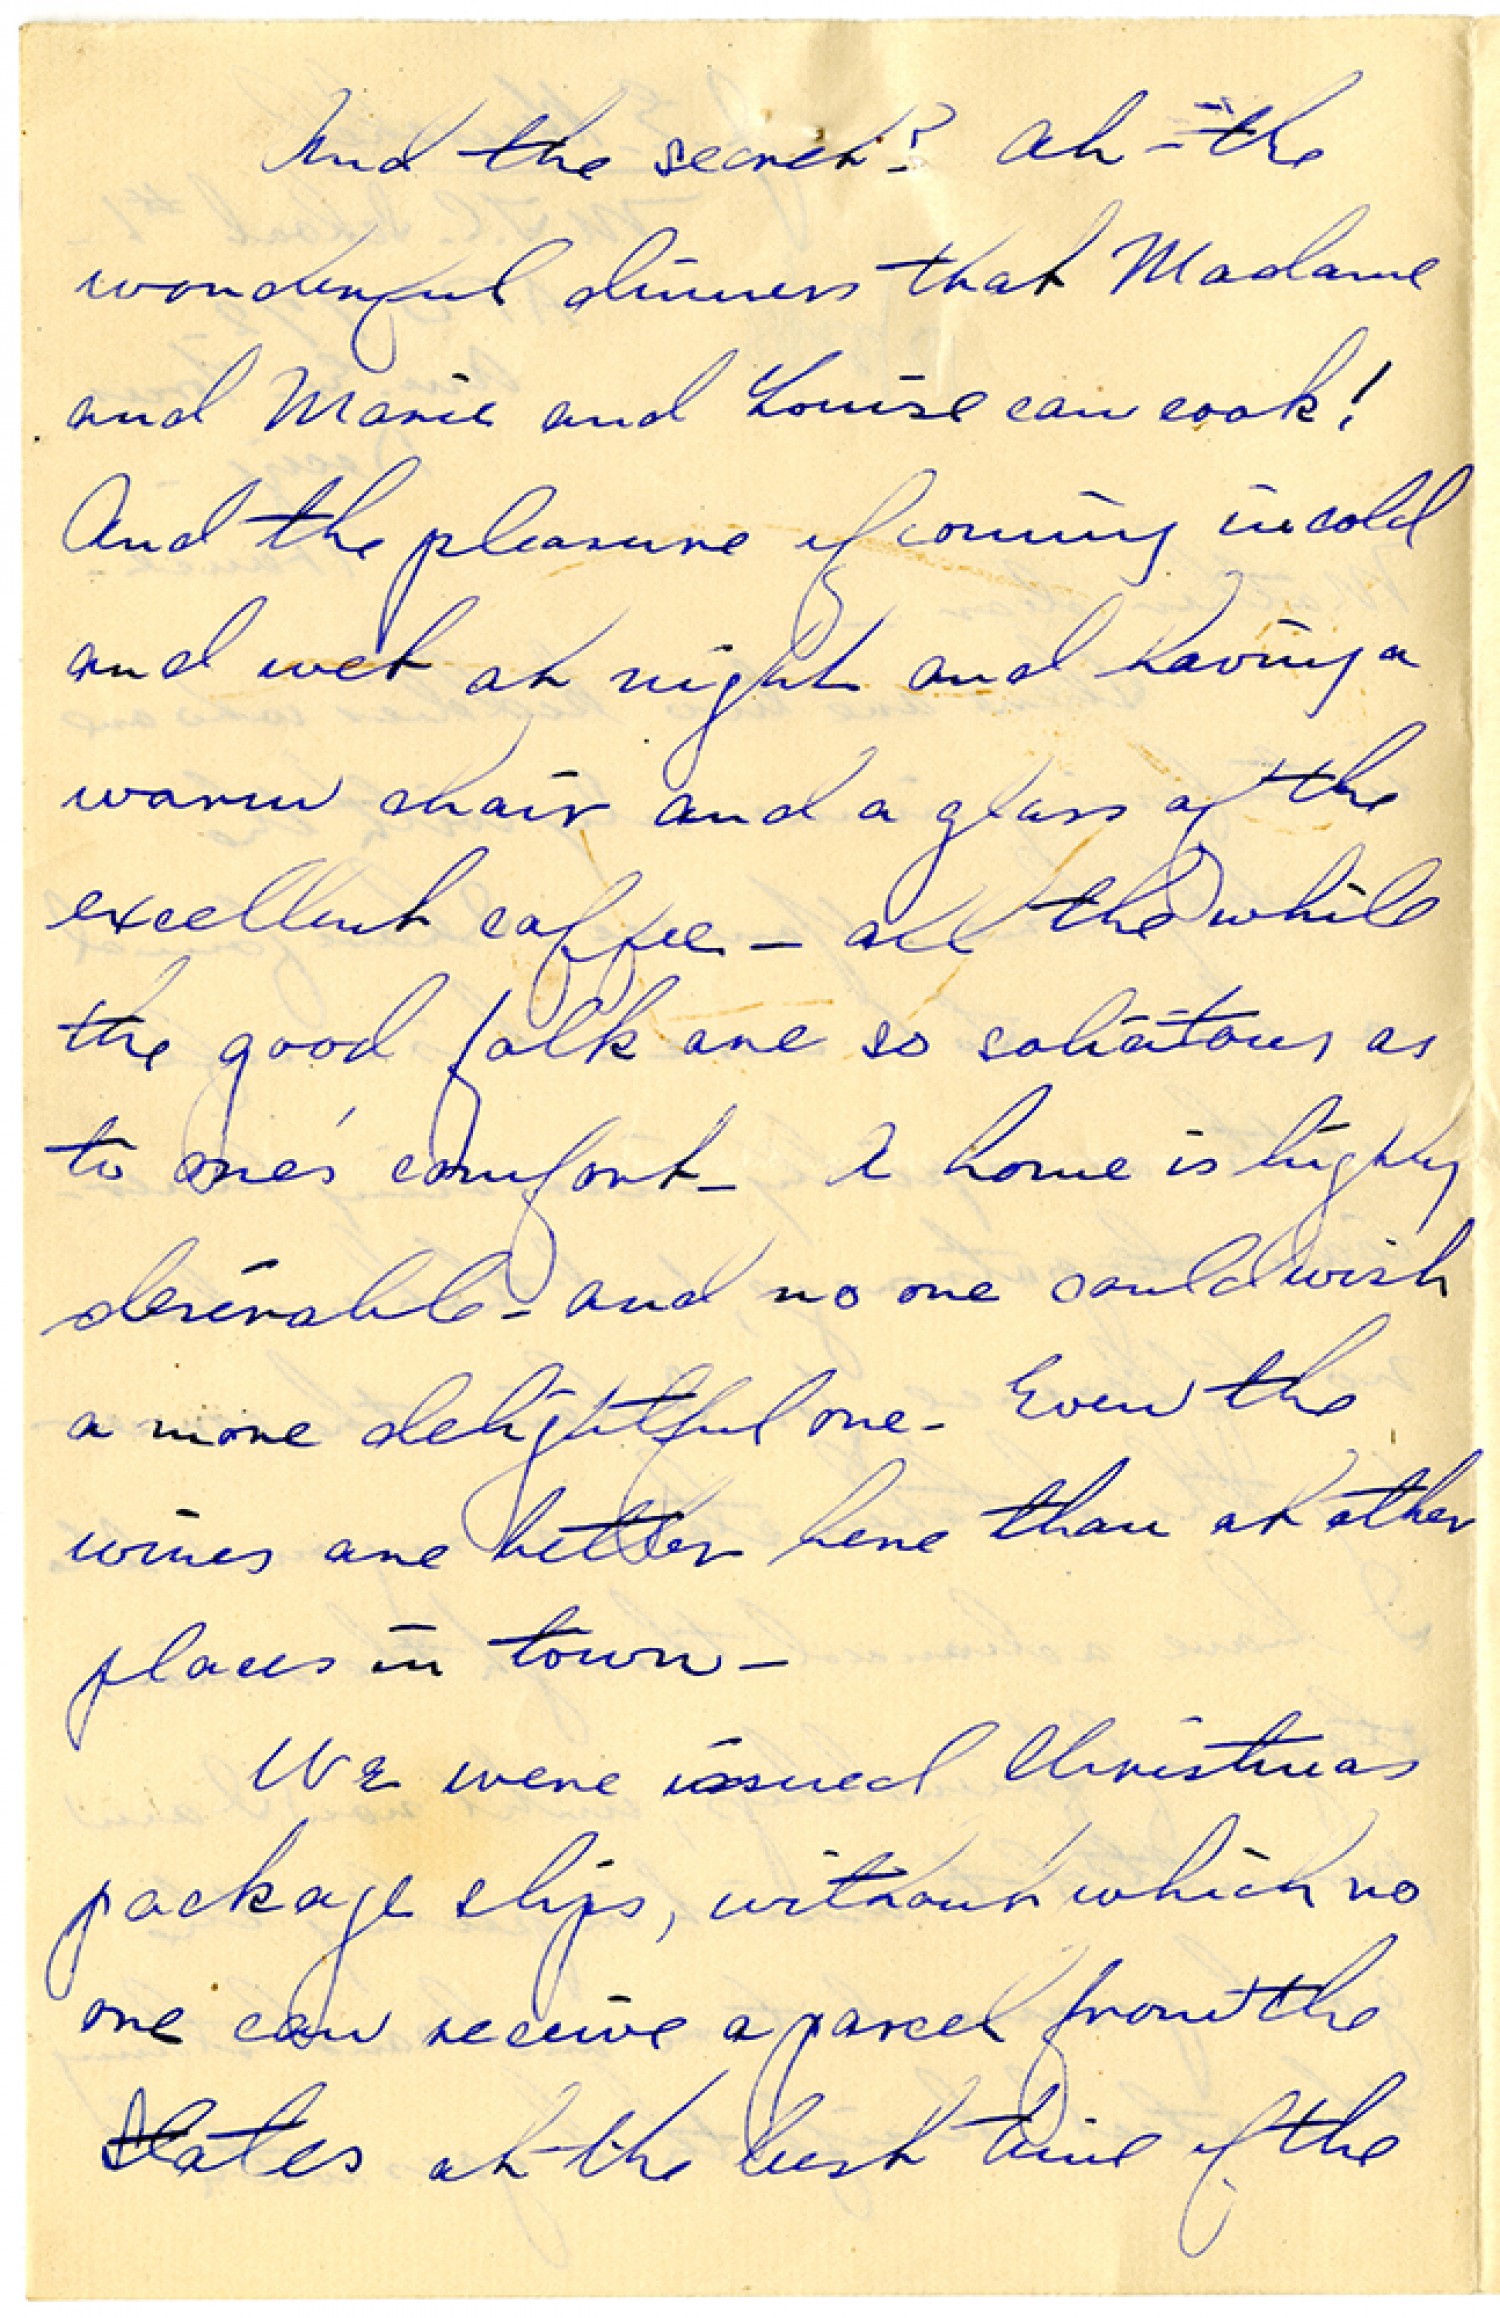 And the secret? Ah - the
wonderful dinners that Madame
and Marie and Louise can cook!
And the pleasure of coming in cold
and wet at night and having a
warm chair and a glass of the
excellent coffee - all the while
the good folk are so solicitous as
to one's comfort - A home is highly
desirable - and no one could wish
a more delightful one - Even the
wines are better here than at other
places in town -
We were issued Christmas
package slips, without which no
one can receive a parcel from the
States at the best time of the